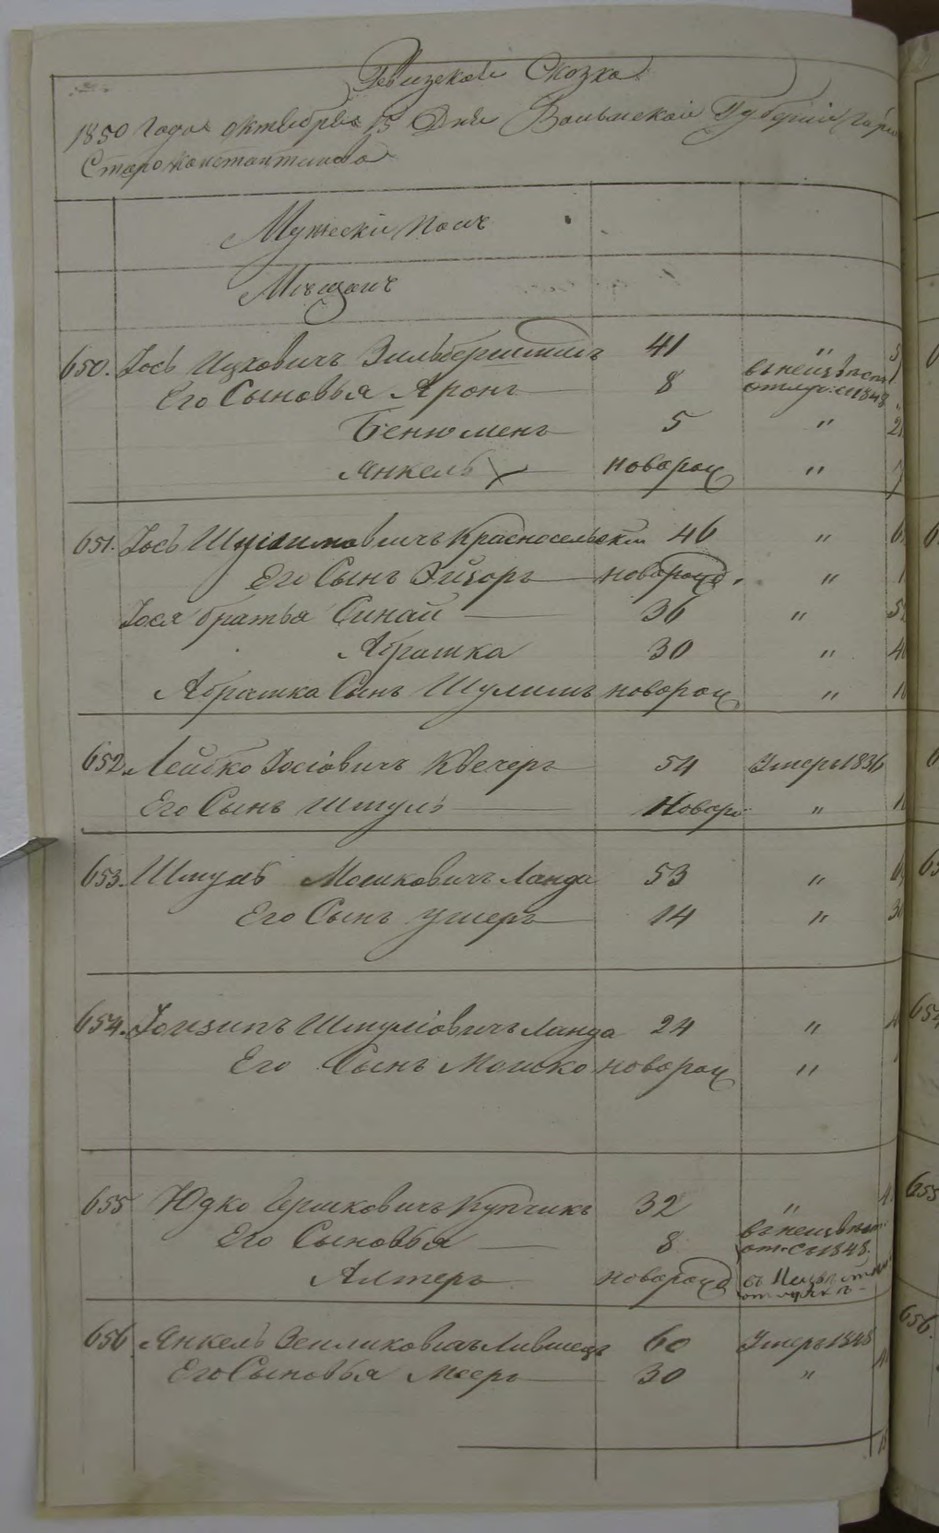 Ревизская Сказка
1850 Года октября 15 Дня Волынской Губернии
Староконстантинова
Мужескiй полъ
Мещанъ
650. Іось Ицковичъ Зильберштейнъ 41 "
Его Сыновья Аронъ 8 въ неизвѣст
отлуч: с 1848
Бенюменъ 5 "
Янкель новорож "
651. Іось Шулимовичъ Красносельскiй 46 "
Его Сынъ Эйзоръ новорожд. "
Іося братья Синай 36 "
Абрашка 30 "
Абрашка Сынъ Шулимъ новорож "
652 Лейбко Іосіовичъ Квечеръ 54 Умеръ 1836
Его Сынъ Шмуль Новоро "
653. Шмуль Мошковичъ Ланда 53 "
Его Сынъ Ушеръ 14 "
654. Іоизипъ Шмуліовичъ Ланда 24 "
Его Сынъ Мошко новорож "
655 Юдко Гершковичъ Купчикъ 32 "
Его Сыновья 8 въ неизвѣст:
отл: с 1848.
Алтеръ новорожд въ Неизвѣст
656 Янкель Зеликовичъ Лившецъ 60 Умеръ 1848
Его Сыновья Мееръ 30 "